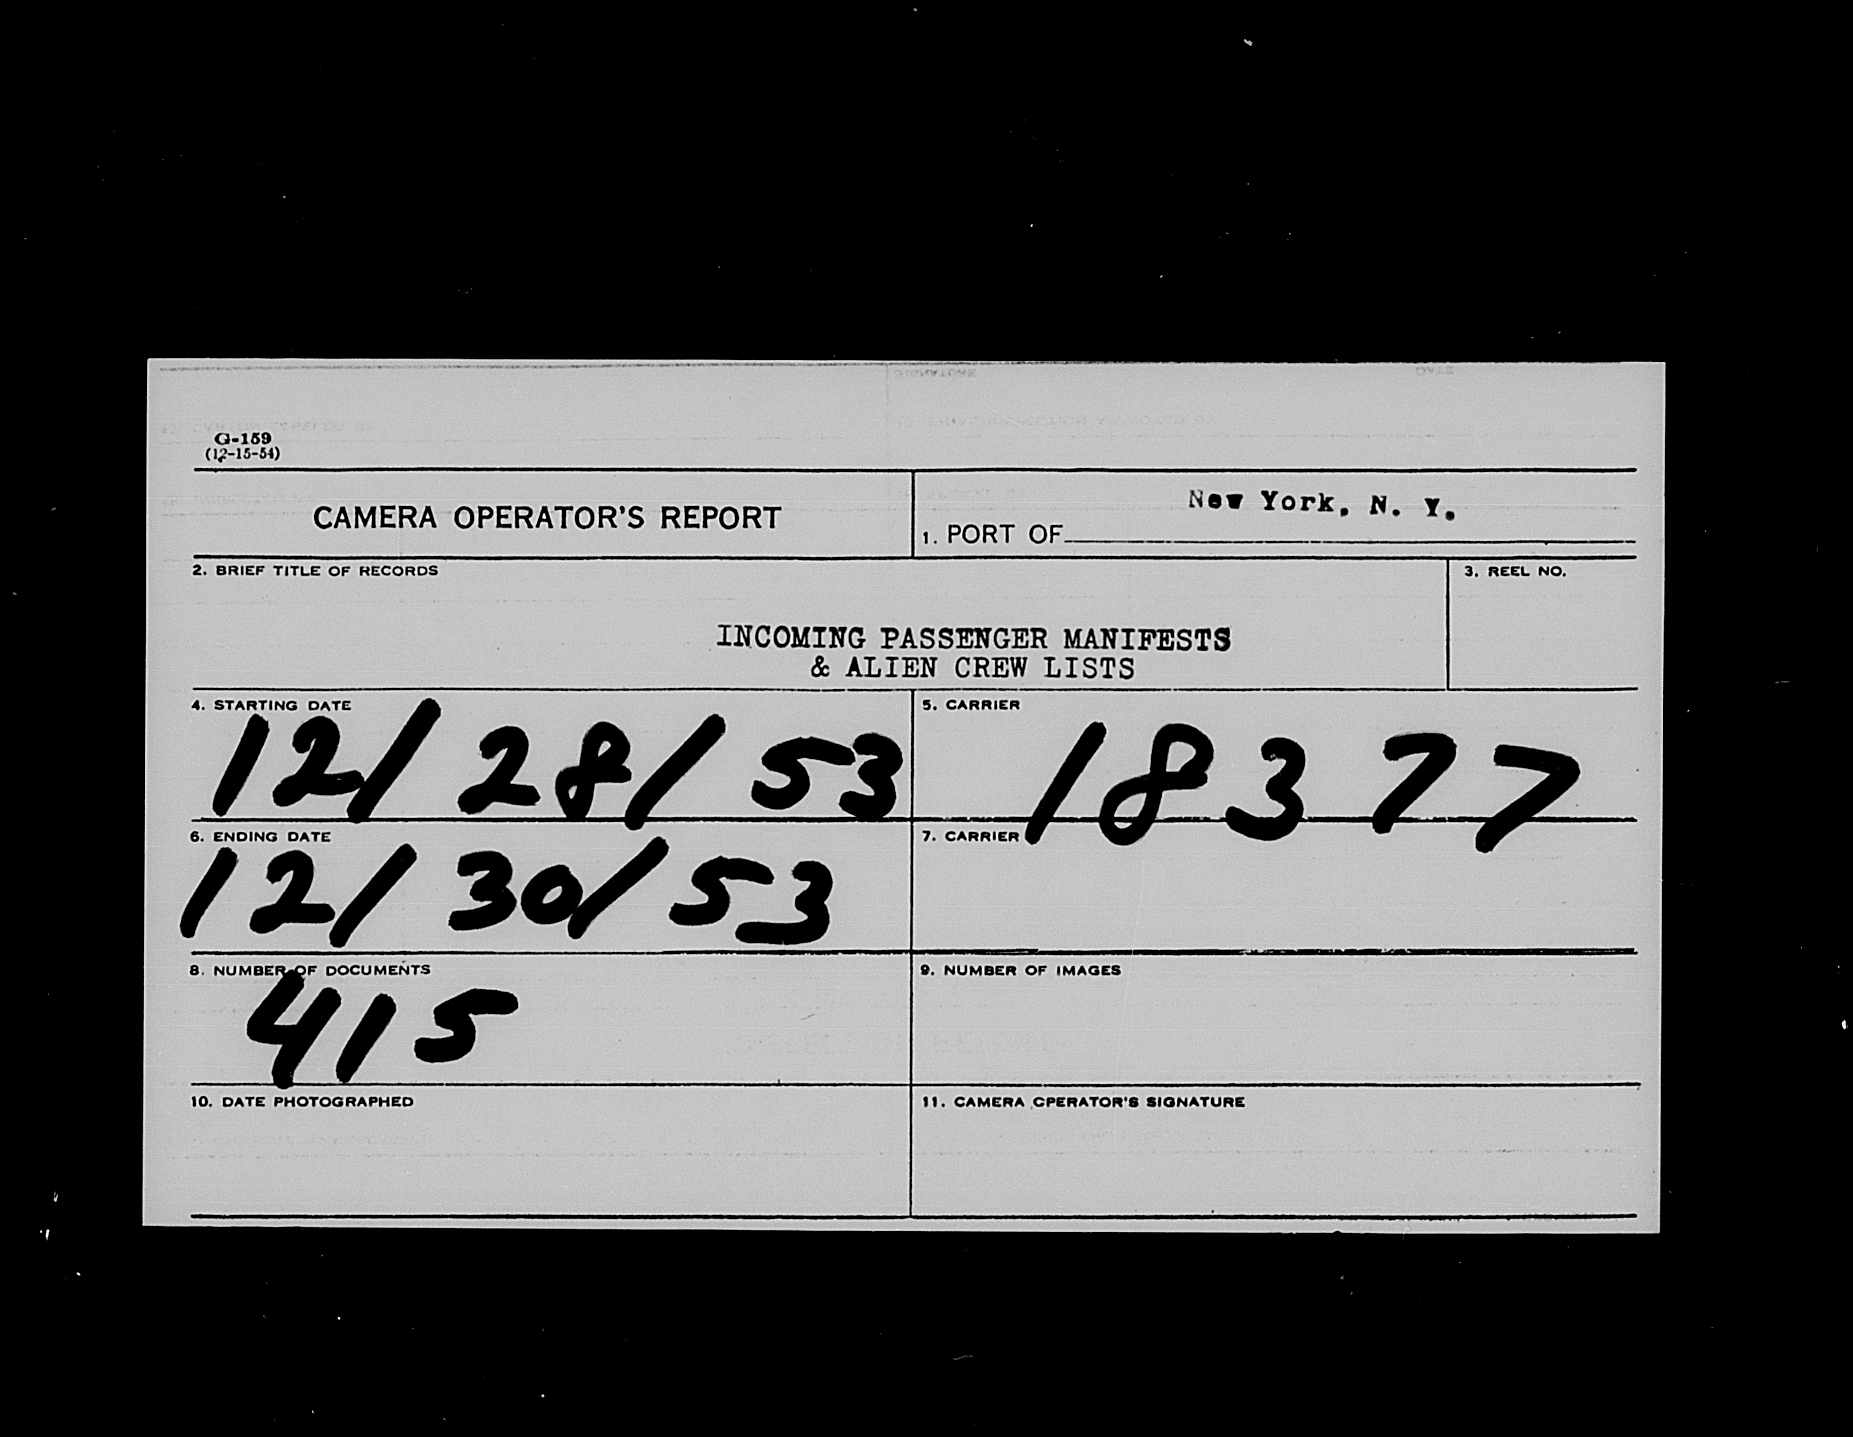 G-159
(12-15-54)
CAMERA OPERATOR'S REPORT
1. PORT OF New York, N. Y.
2. BRIEF TITLE OF RECORDS
3. REEL NO.
INCOMING PASSENGER MANIFESTS
& ALIEN CREW LISTS
4. STARTING DATE
12/28/53
5. CARRIER
18377
6. ENDING DATE
12/30/53
7. CARRIER
8. NUMBER OF DOCUMENTS
415
9. NUMBER OF IMAGES
10. DATE PHOTOGRAPHED
11. CAMERA OPERATOR'S SIGNATURE